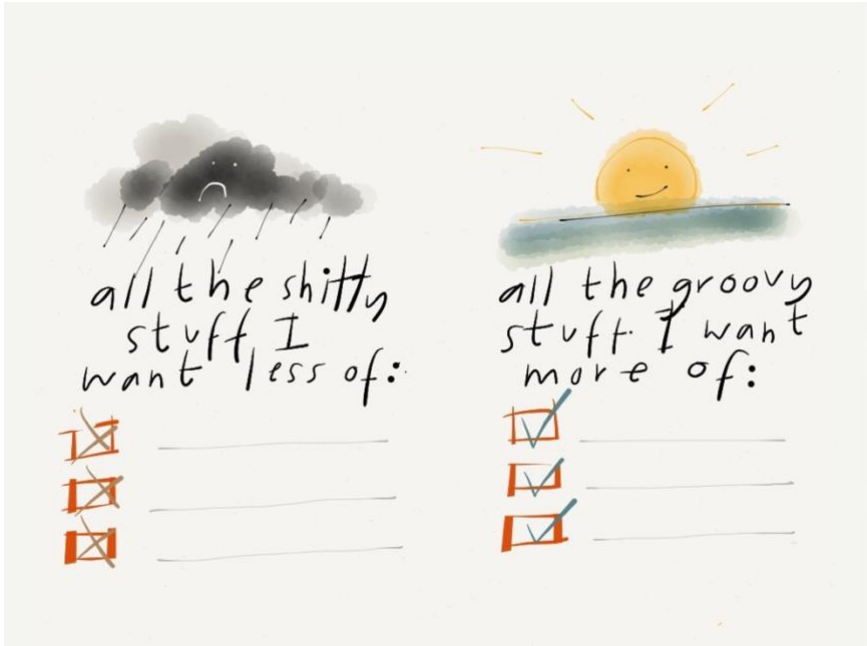 all the shitty
stuff I
want less of:
all the groovy
stuff I want
more of: